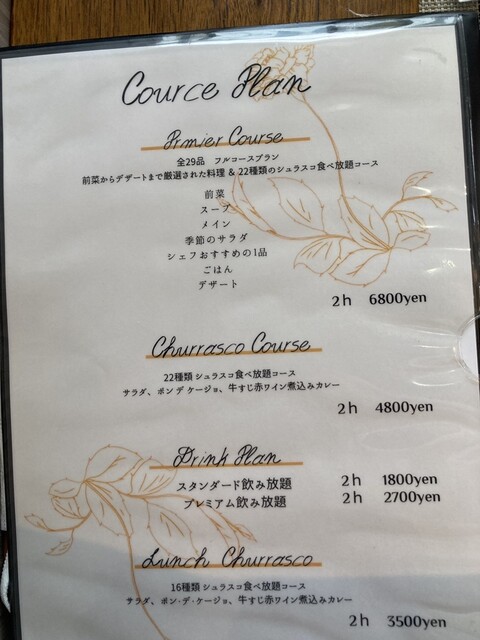 Cource Plan
Prmier Course
全29品 フルコースプラン
前菜からデザートまで厳選された料理 & 22種類のシュラスコ食べ放題コース
前菜
スープ
メイン
季節のサラダ
シェフおすすめの1品
ごはん
デザート
2h 6800yen
Churrasco Course
22種類 シュラスコ食べ放題コース
サラダ、ポン デ ケージョ、牛すじ赤ワイン煮込みカレー
2h 4800yen
Drink Plan
スタンダード飲み放題 2h 1800yen
プレミアム飲み放題 2h 2700yen
Lunch Churrasco
16種類 シュラスコ食べ放題コース
サラダ、ポン・デ・ケージョ、牛すじ赤ワイン煮込みカレー
2h 3500yen